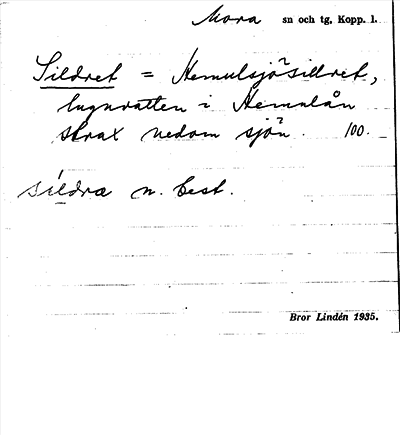 Mora sn och tg, Kopp. l.
Sildret = Hemulsjösildret,
lugnvatten i Hemulån
strax nedom sjön. 100.
sildra n. best.
Bror Lindén 1935.